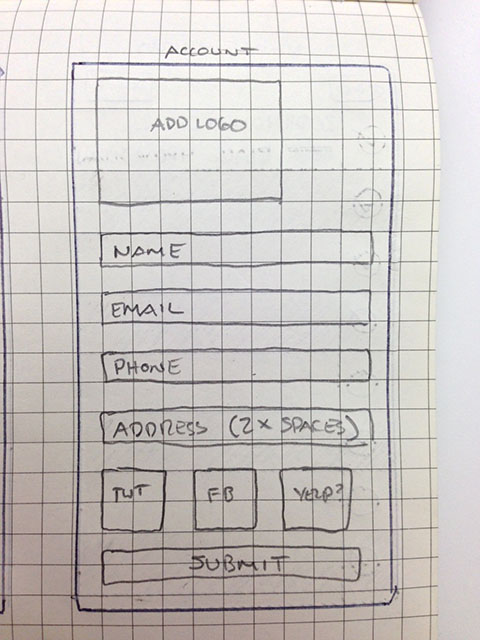 ACCOUNT
ADD LOGO
NAME
EMAIL
PHONE
ADDRESS (2x SPACES)
TWT FB YELP?
SUBMIT